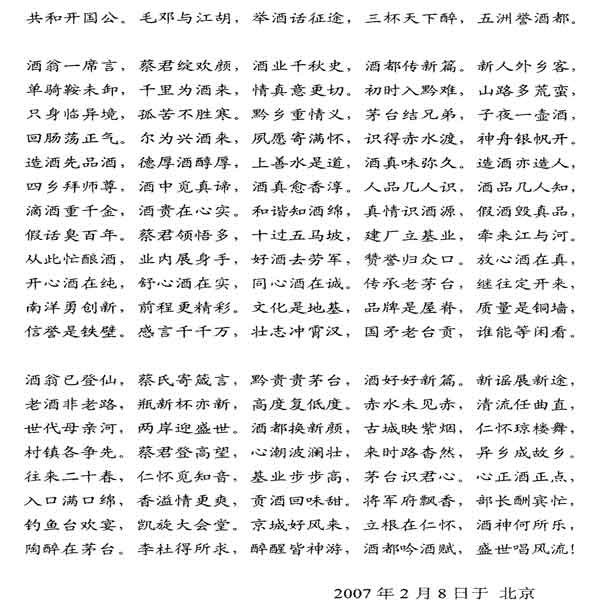 共和开国公。毛邓与江胡，举酒话征途，三杯天下醉，五洲誉酒都。
酒翁一席言，蔡君绽欢颜，酒业千秋史，酒都传新篇。新人外乡客，
单骑鞍未卸，千里为酒来，情真意更切。初时入黔难，山路多荒蛮，
只身临异境，孤苦不胜寒。黔乡重情义，茅台结兄弟，子夜一壶酒，
回肠荡正气。尔为兴酒来，夙愿寄满怀，识得赤水渡，神舟银帆开。
造酒先品酒，德厚酒醇厚，上善水是道，酒真味弥久。造酒亦造人，
四乡拜师尊，酒中觅真谛，酒真愈香淳。人品几人识，酒品几人知，
滴酒重千金，酒贵在心实。和谐知酒绵，真情识酒源，假酒毁真品，
假话臭百年。蔡君领悟多，十过五马坡，建厂立基业，牵来江与河。
从此忙酿酒，业内展身手，好酒去劳军，赞誉归众口。放心酒在真，
开心酒在纯，舒心酒在实，同心酒在诚。传承老茅台，继往定开来，
南洋勇创新，前程更精彩。文化是地基，品牌是屋脊，质量是铜墙，
信誉是铁壁。感言千千万，壮志冲霄汉，国矛老台贡，谁能等闲看。
酒翁已登仙，蔡氏寄箴言，黔贵贵茅台，酒好好新篇。新谣展新途，
老酒非老路，瓶新杯亦新，高度复低度。赤水未见赤，清流任曲直，
世代母亲河，两岸迎盛世。酒都换新颜，古城映紫烟，仁怀琼楼舞，
村镇各争先。蔡君登高望，心潮波澜壮，来时路杳然，异乡成故乡。
往来二十春，仁怀觅知音，基业步步高，茅台识君心。心正酒正点，
入口满口绵，香溢情更爽，贡酒回味甜。将军府飘香，部长酬宾忙，
钓鱼台欢宴，凯旋大会堂。京城好风来，立根在仁怀，酒神何所乐，
陶醉在茅台。李杜得所求，醉醒皆神游，酒都吟酒赋，盛世唱风流！
2007 年 2 月 8 日于 北京